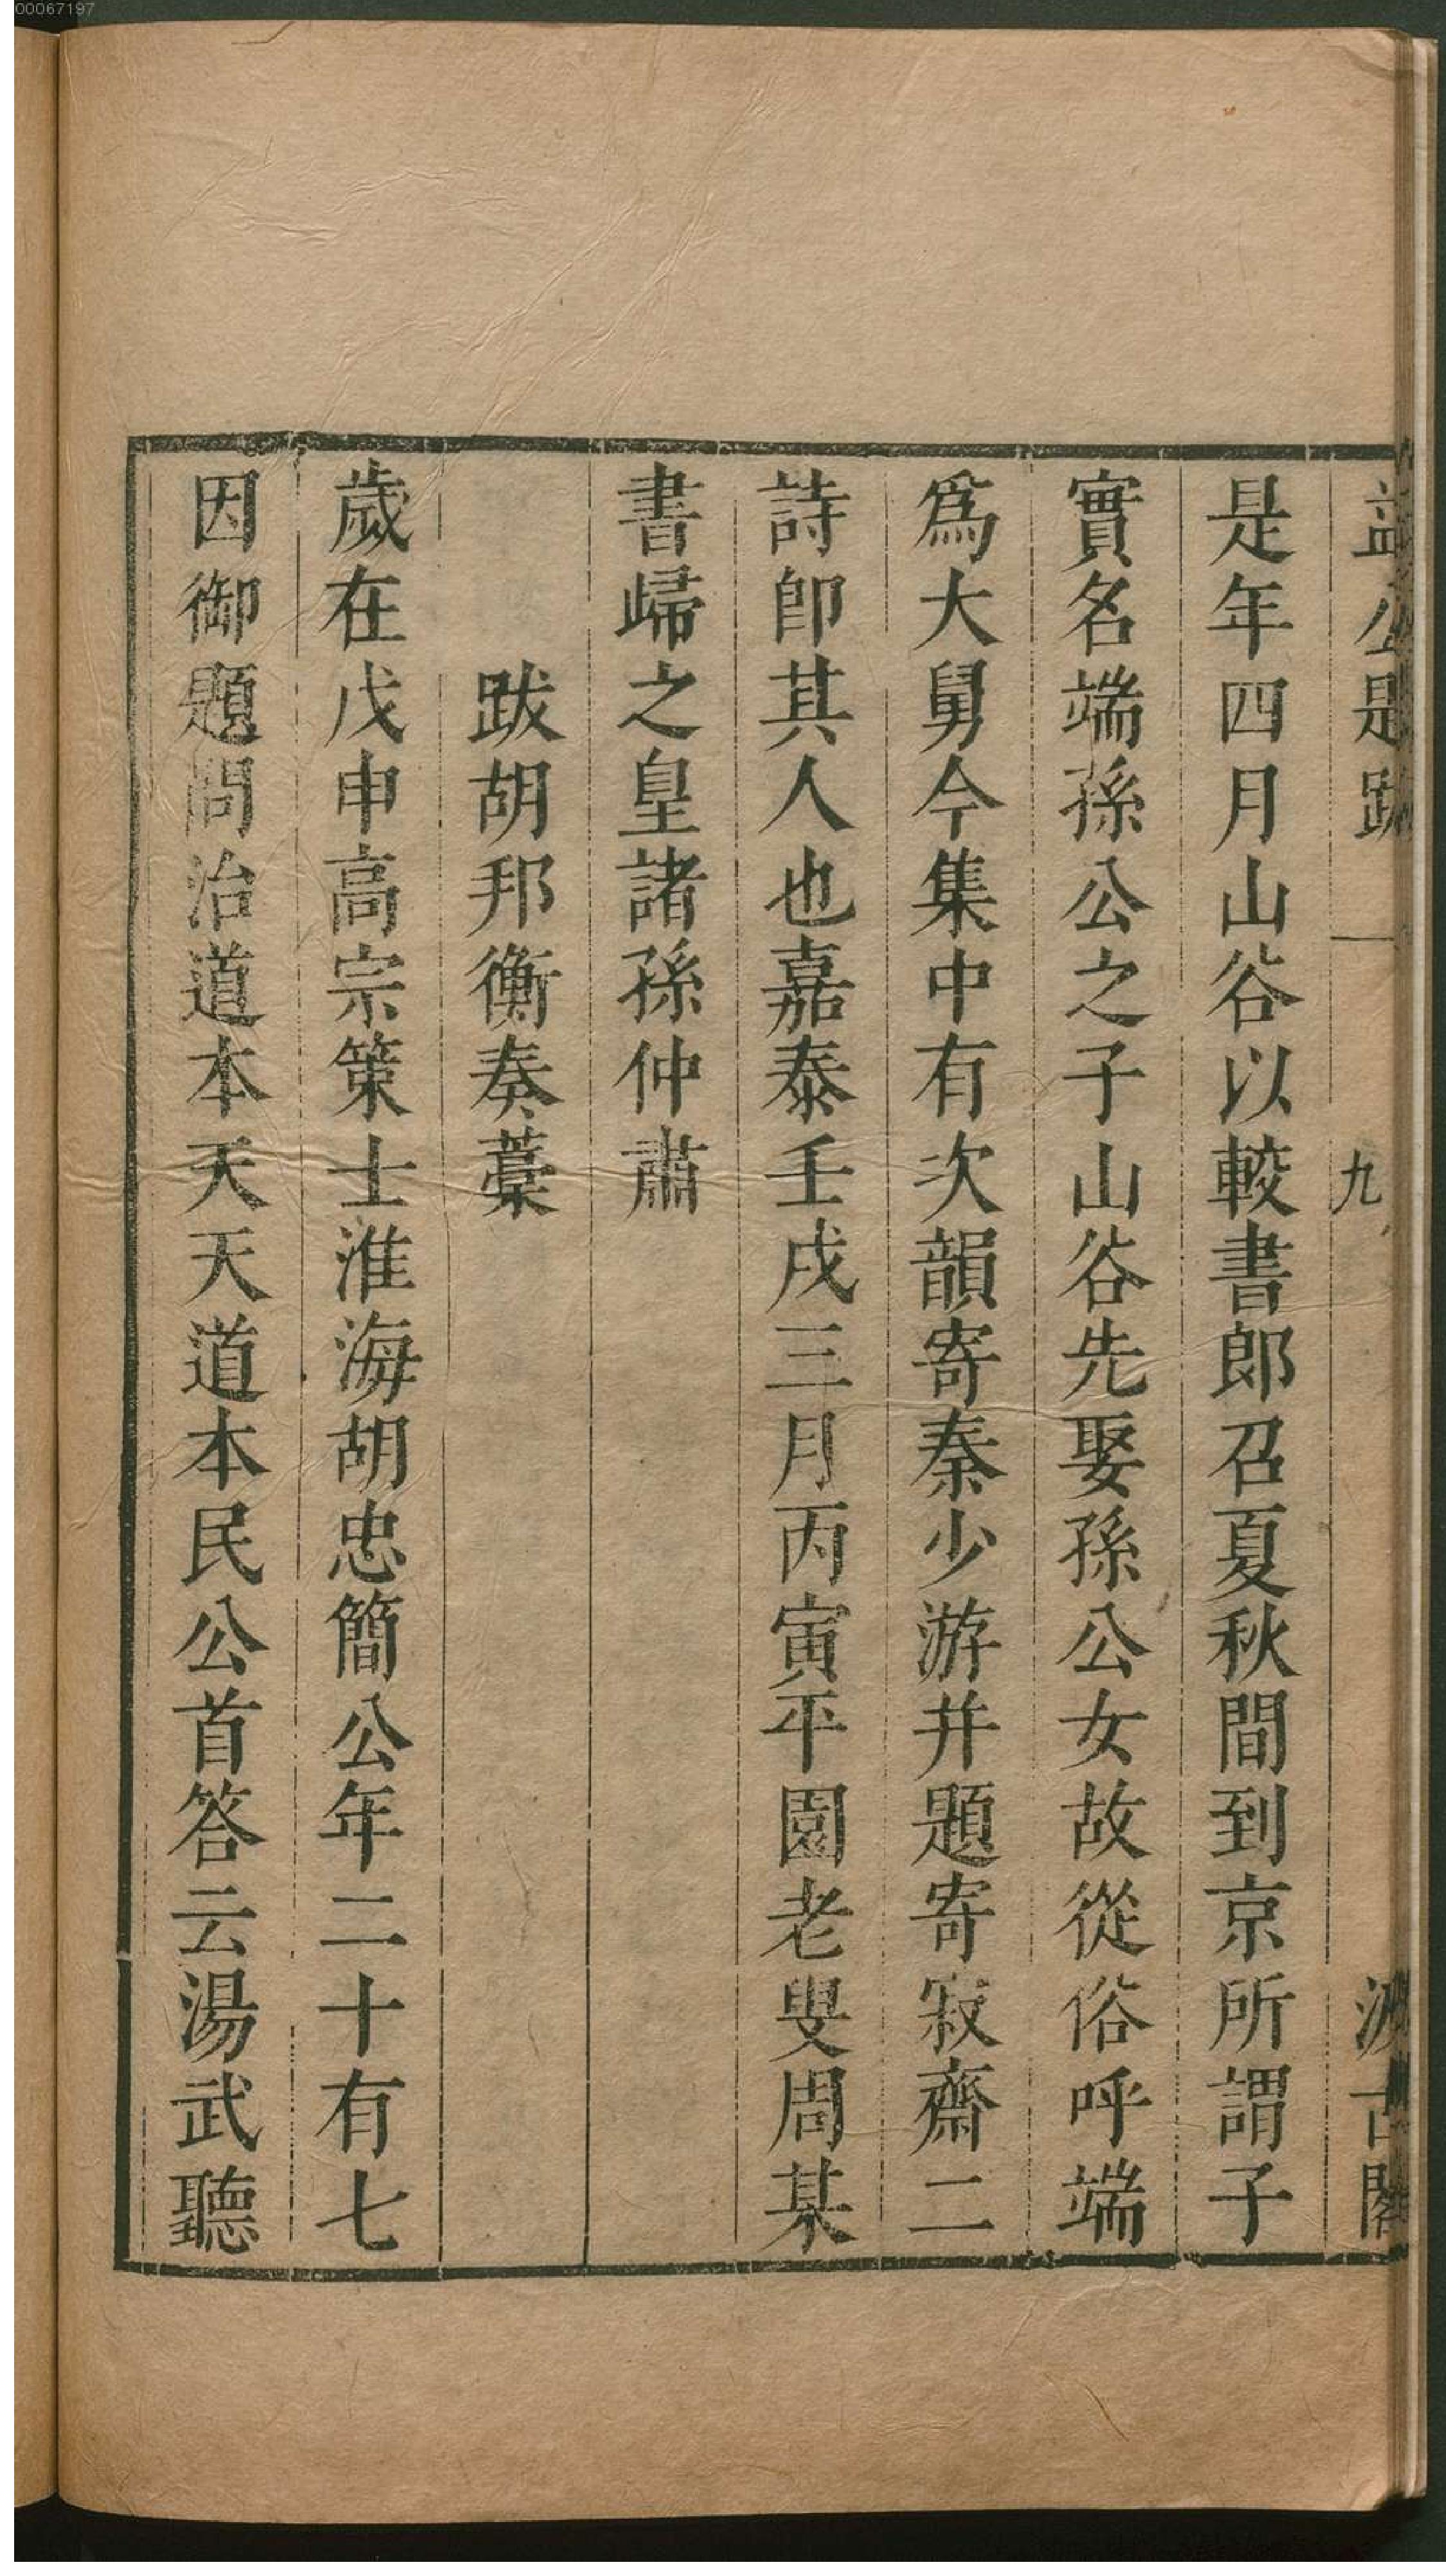 00067197
益公題跋 九 汲古閣
是年四月山谷以較書郎召夏秋間到京所謂子
實名端孫公之子山谷先娶孫公女故從俗呼端
爲大舅今集中有次韻寄秦少游并題寄寂齋二
詩卽其人也嘉泰壬戌三月丙寅平園老叟周某
書歸之皇諸孫仲肅
跋胡邦衡奏藁
歲在戊申高宗策士淮海胡忠簡公年二十有七
因御題問治道本天天道本民公首答云湯武聽